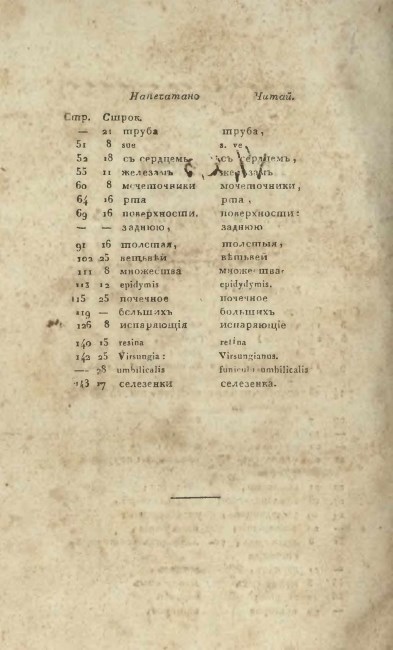 Напечатано Читай.
Стр. Строк.
— 21 труба труба,
51 8 sue s. ve
52 18 съ сердцемъ съ сердцемъ,
55 11 железамъ железамъ
60 8 мочеточники мочеточники,
64 16 рта рта,
69 16 поверхности. поверхности:
— — заднюю, заднюю
91 16 толстая, толстыя,
102 25 вещьвей вѣтьвей
111 8 множества множества
113 12 epidymis epidydymis.
115 25 почечное почечное
119 — большихъ большихъ
126 8 испаряющія испаряющіе
140 15 resina retina
142 25 Virsungia: Virsungianus.
— 28 umbilicalis funicul umbilicalis
143 17 селезенки селезенка.